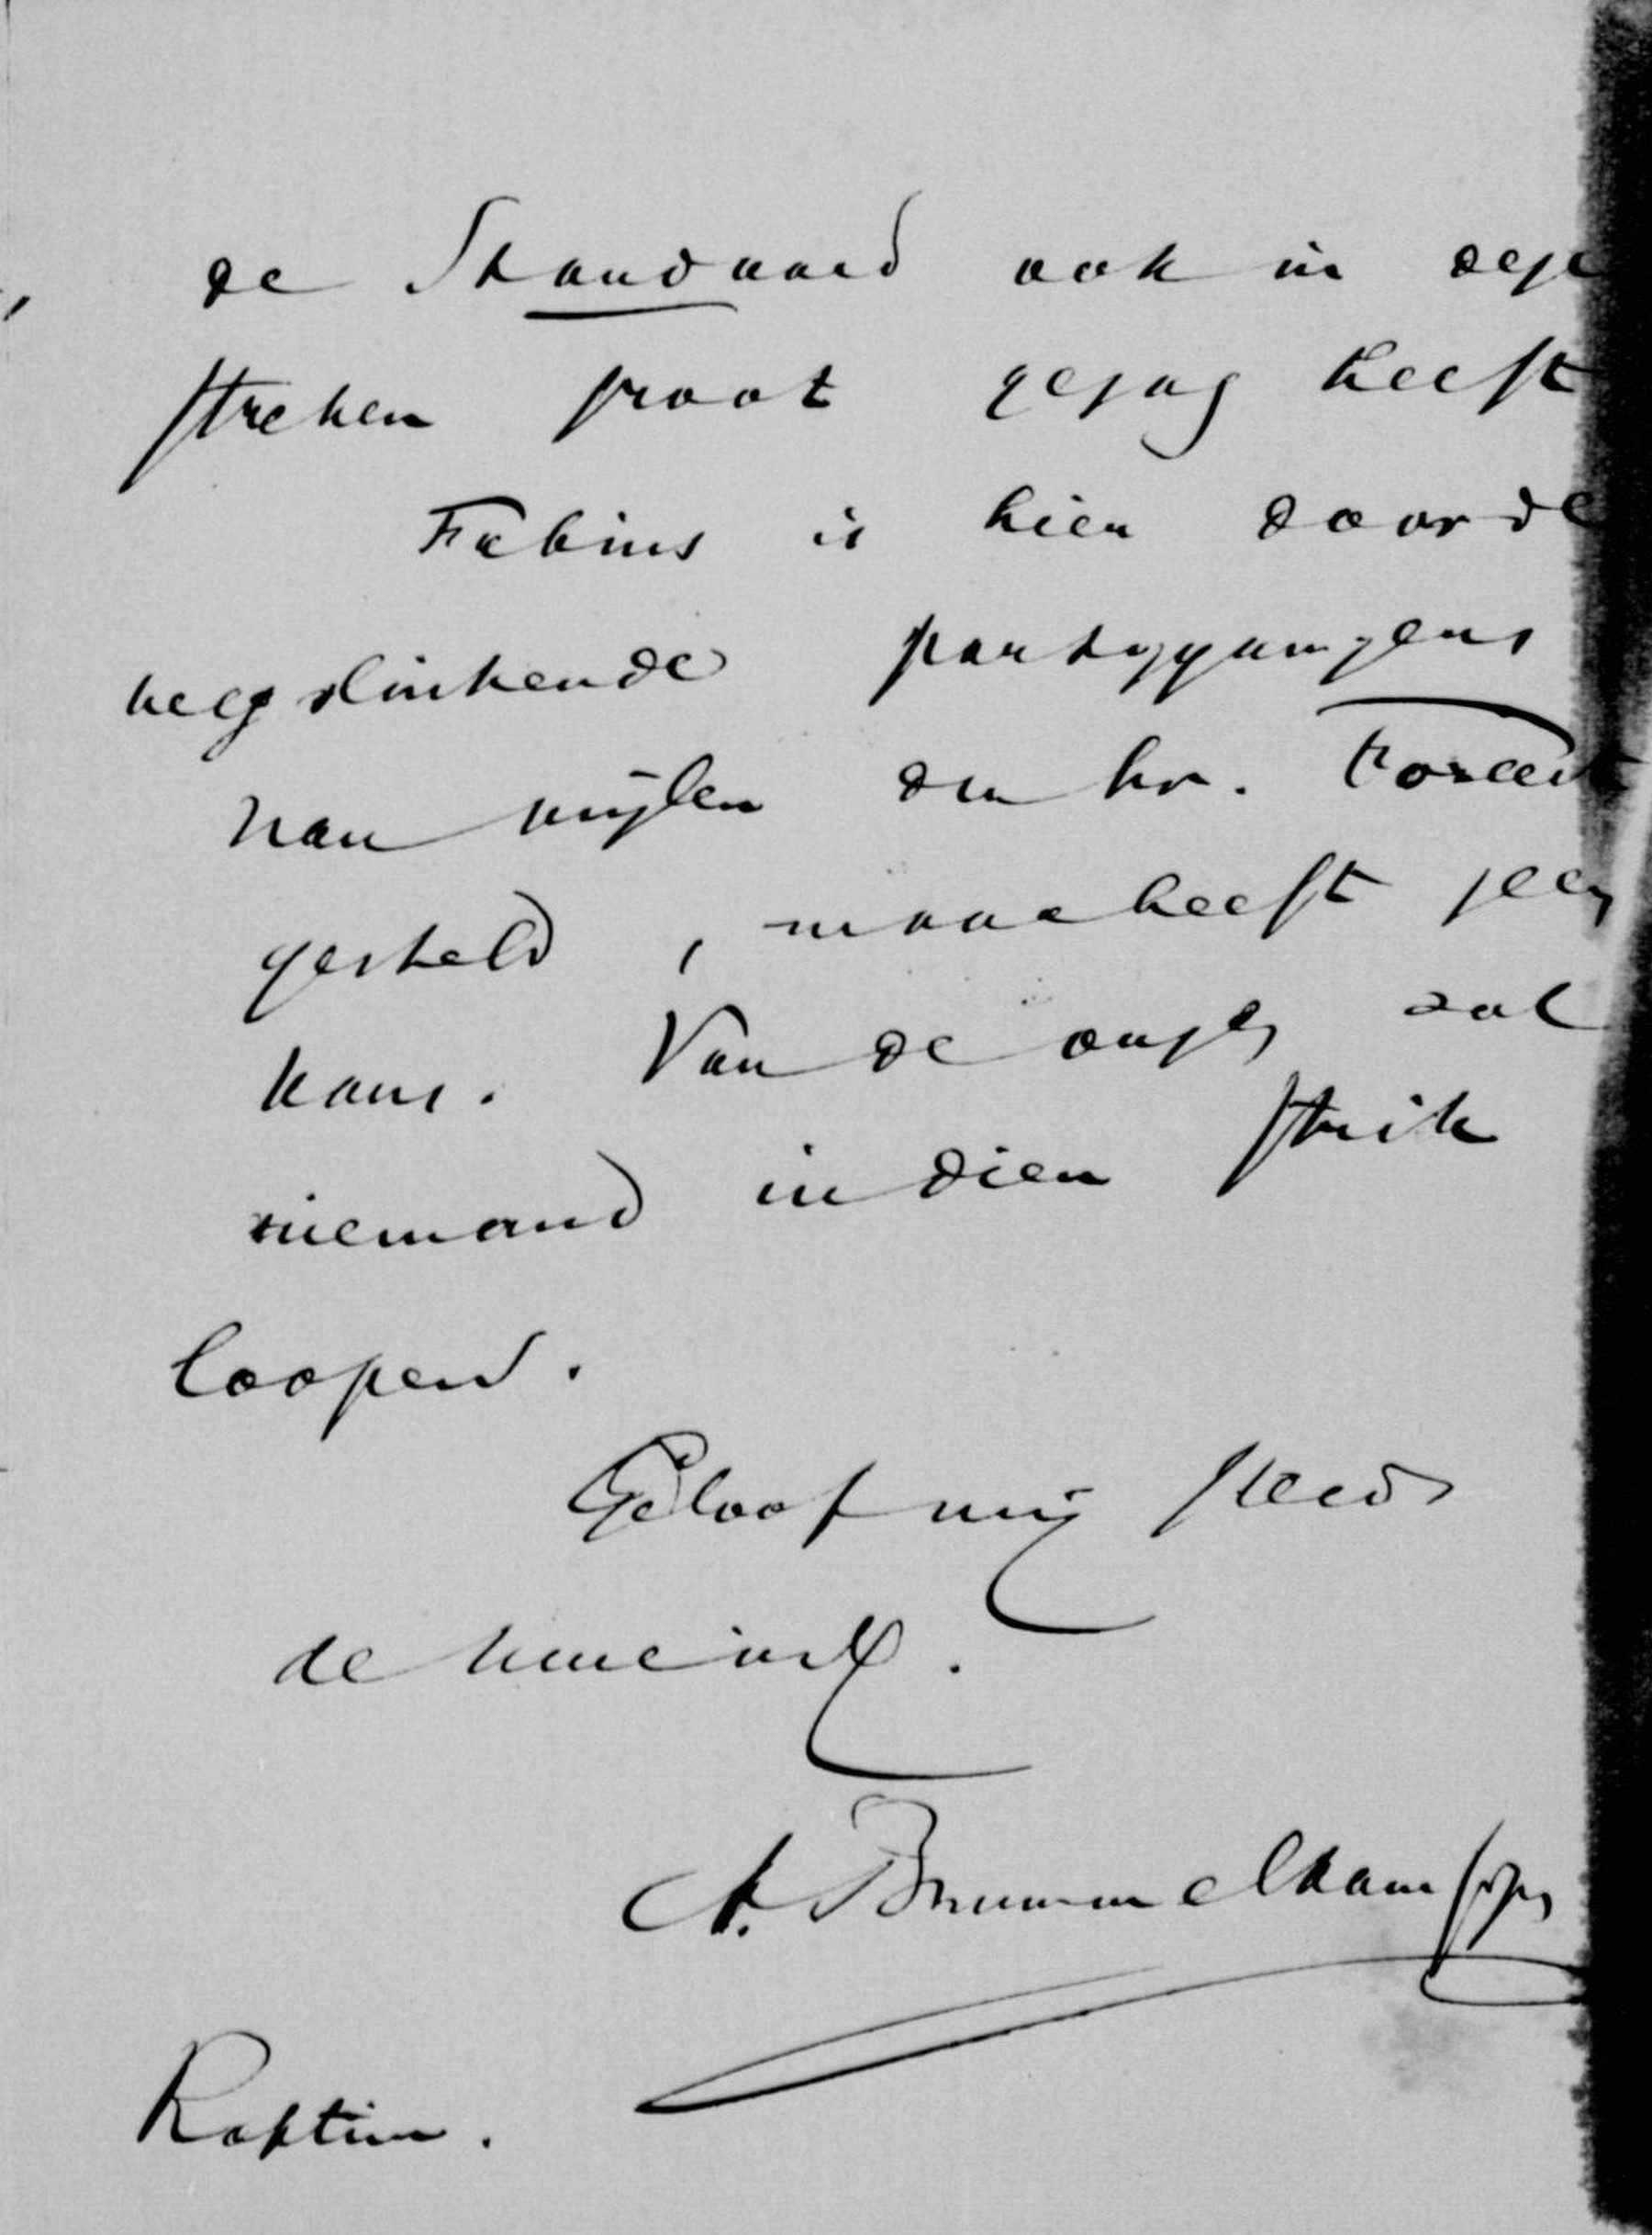 de Standaard ook in deze
streken groot gezag heeft
Fabius is hier door de
weg slinkende partijgangers
van wijlen den hr.
gesteld, maar heeft geen
kans. Van de onzen zal
niemand in dien strik
loopen.
Geloof mij steeds
de Uwe in
A. Brummelkamp jr
Raptim.